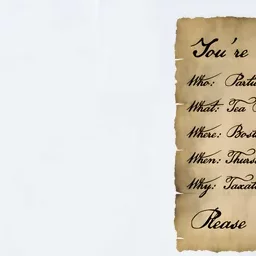 You're
Who: Partic
What: Tea
Where: Bost
When: Thurs
Why: Taxat
Please